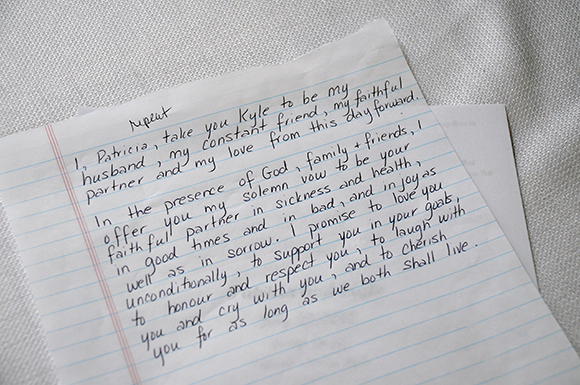 repeat
I, Patricia, take you Kyle to be my
husband, my constant friend, my faithful
partner and my love from this day forward.
In the presence of God, family + friends, I
offer you my solemn vow to be your
faithfull partner in sickness and health,
in good times and in bad, and in joy as
well as in sorrow. I promise to love you
unconditionally, to support you in your goals,
to honour and respect you, to laugh with
you and cry with you, and to cherish
you for as long as we both shall live.